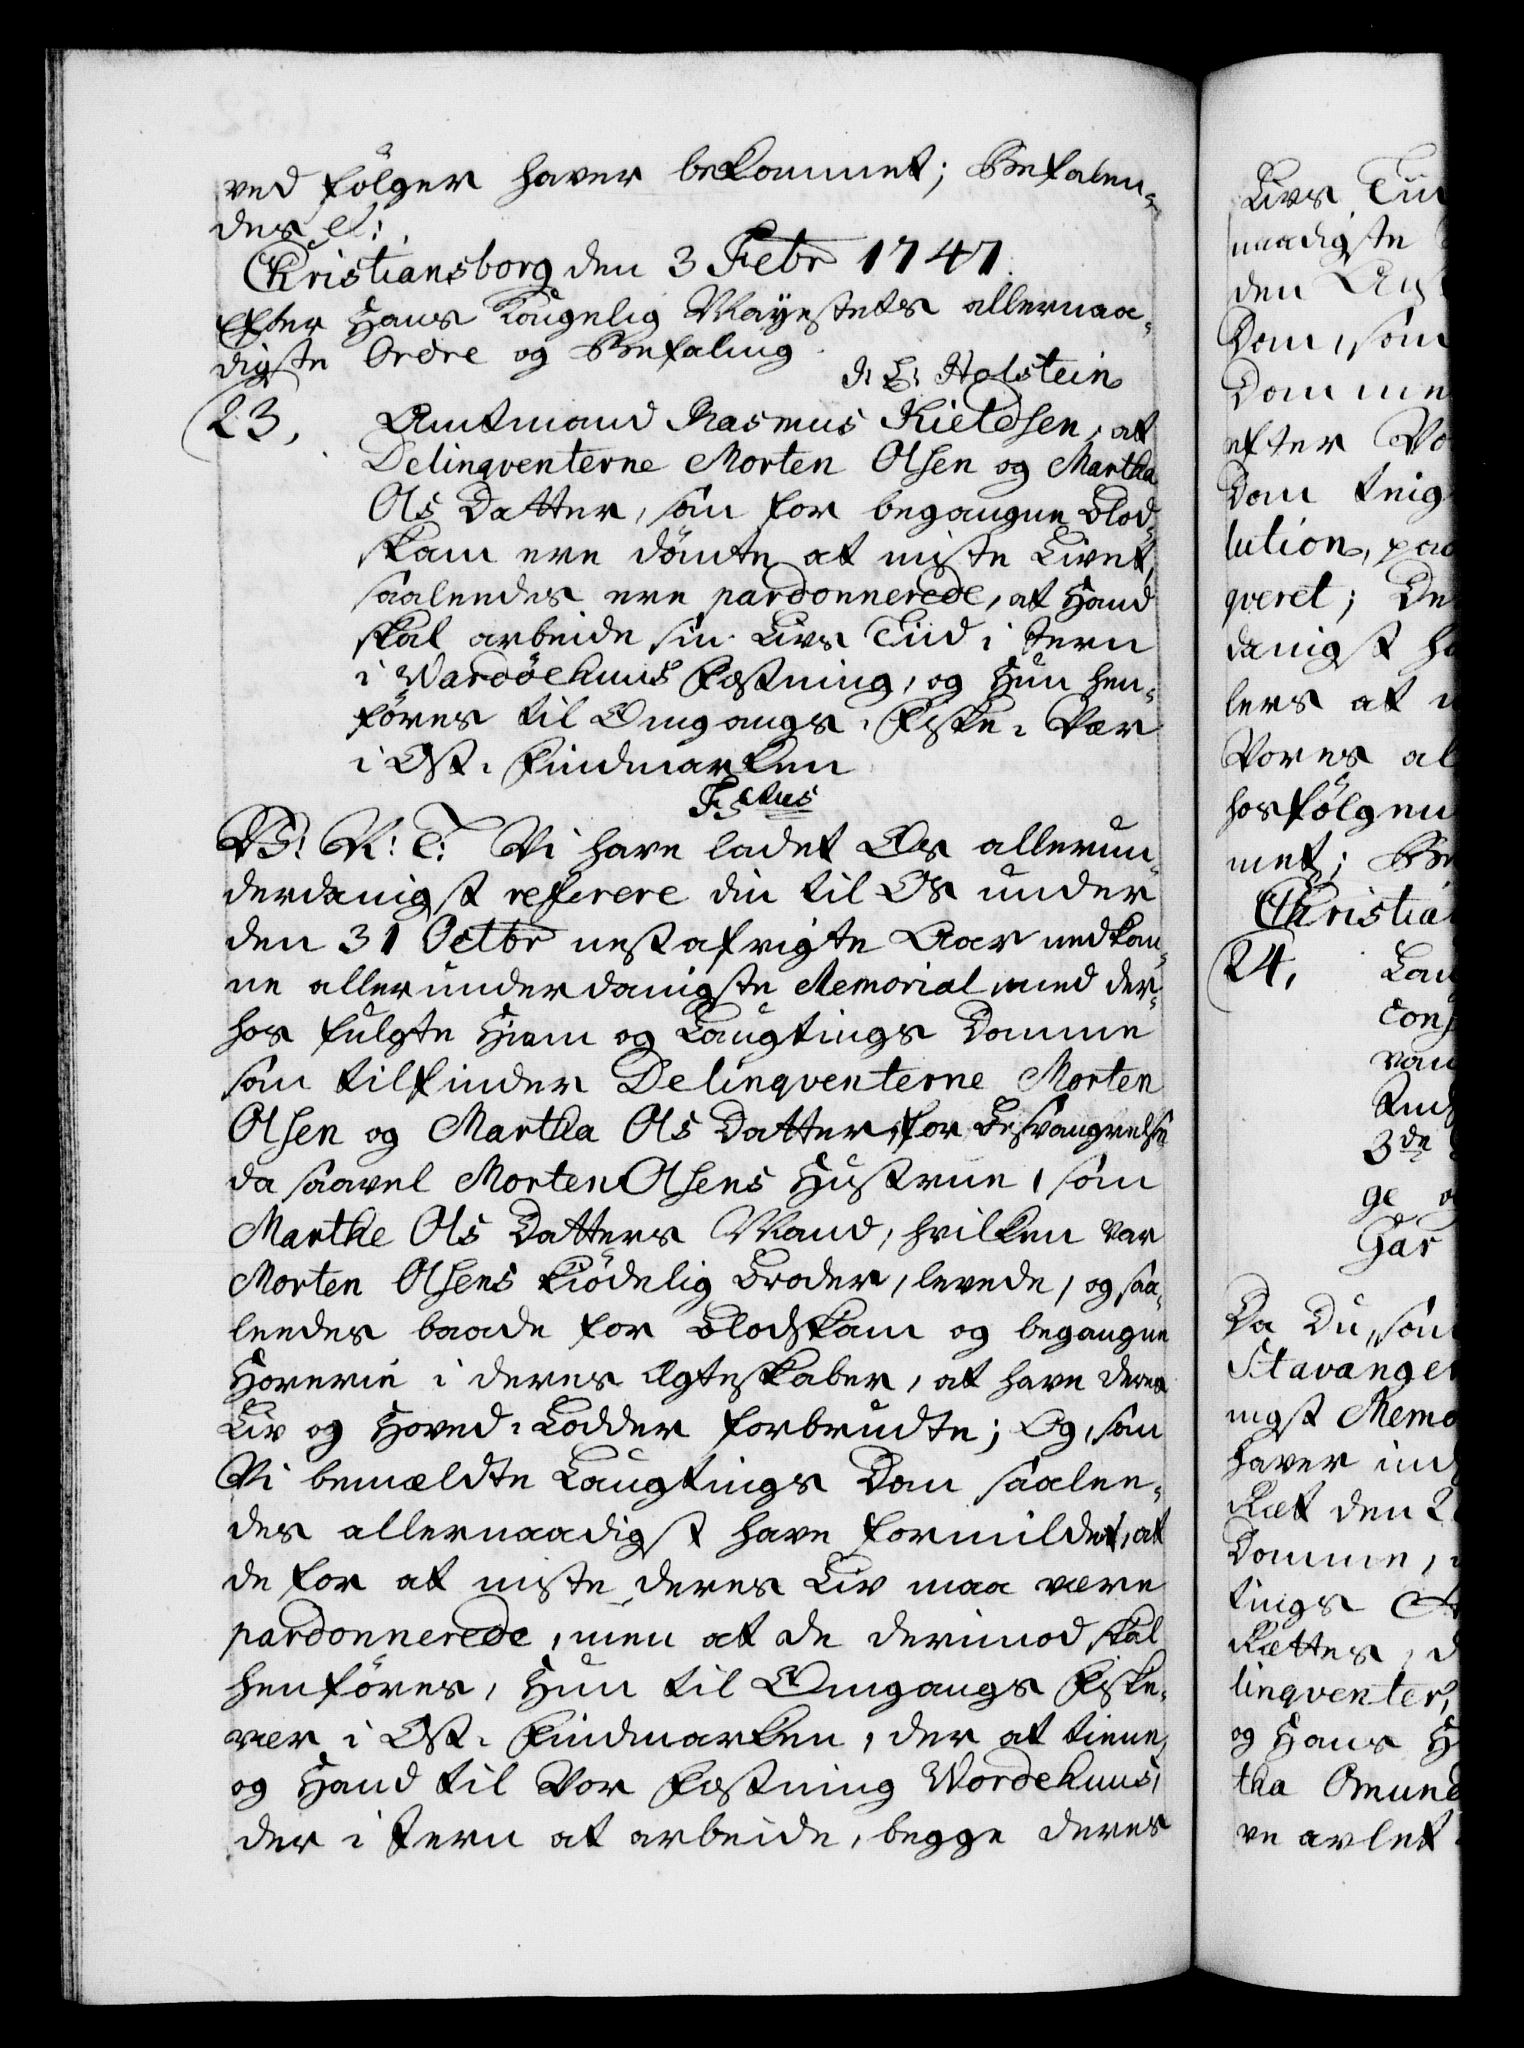 ved følger haver bekommet; Befalen-
des etc:
Christiansborg den 3 Febr 1747.
Efter Hans Kongelig Mayestets allernaa-
digste Ordre og Befaling.
J: L: Holstein
23. Amtmand Rasmus Kieldsen, at
Delinqventerne Morten Olsen og Martha
Ols Datter, som for begangne Blod-
skam ere dömte at miste Livet,
saaledes ere pardonnerede, at Hand
skal arbeide sin Livs Tiid i Jern
i Wardöehuus Fæstning, og Hun hen-
föres til Omgangs-Fiske-Vær
i Ost-Findmarken
F 5tus
V: G: T: Vi have ladet Os allerun-
derdanigst referere din til Os under
den 31 Octbr nestafvigte Aar nedkom-
ne allerunderdanigste Memorial, med der-
hos fulgte Hiem og Laugtings Domme
som tilfinder Delinqventerne Morten
Olsen og Martha Ols Datter, for Besvangrelse
da saavel Morten Olsens Hustrue, som
Marthe Ols Datters Mand, hvilken var
Morten Olsens Kiödelig Broder, levede, og saa-
ledes baade for Blodskam og begangne
Horerie i deres Ægteskaber, at have deres
Liv og Hoved-Lodder forbrudte; Og, som
Vi bemældte Laugtings Dom saale-
des allernaadigst have formildet, at
de for at miste deres Liv maa være
pardonnerede, men at de derimod skal
henföres, Hun til Omgangs Fiske-
vær i Ost-Findmarken, der at tiene,
og Hand til Vor Fæstning Wordehuus,
der i Jern at arbeide, begge deres
Livs Tii
naadigste
den
Dom, som
Domme
efter Vo
Dom
lution, paa
qveret; De
danigst ha
lers at
Vores al
hosfölgen
met; Be
Christia
24. Lau
Cons
van
3de
ge
Gar
Da Du, som
Stavanger
nigst Memo
haver ind
Ræt den 2
Domme,
tings
Rettes, d
linqventer,
og Hans H
tha Omund
re avlet